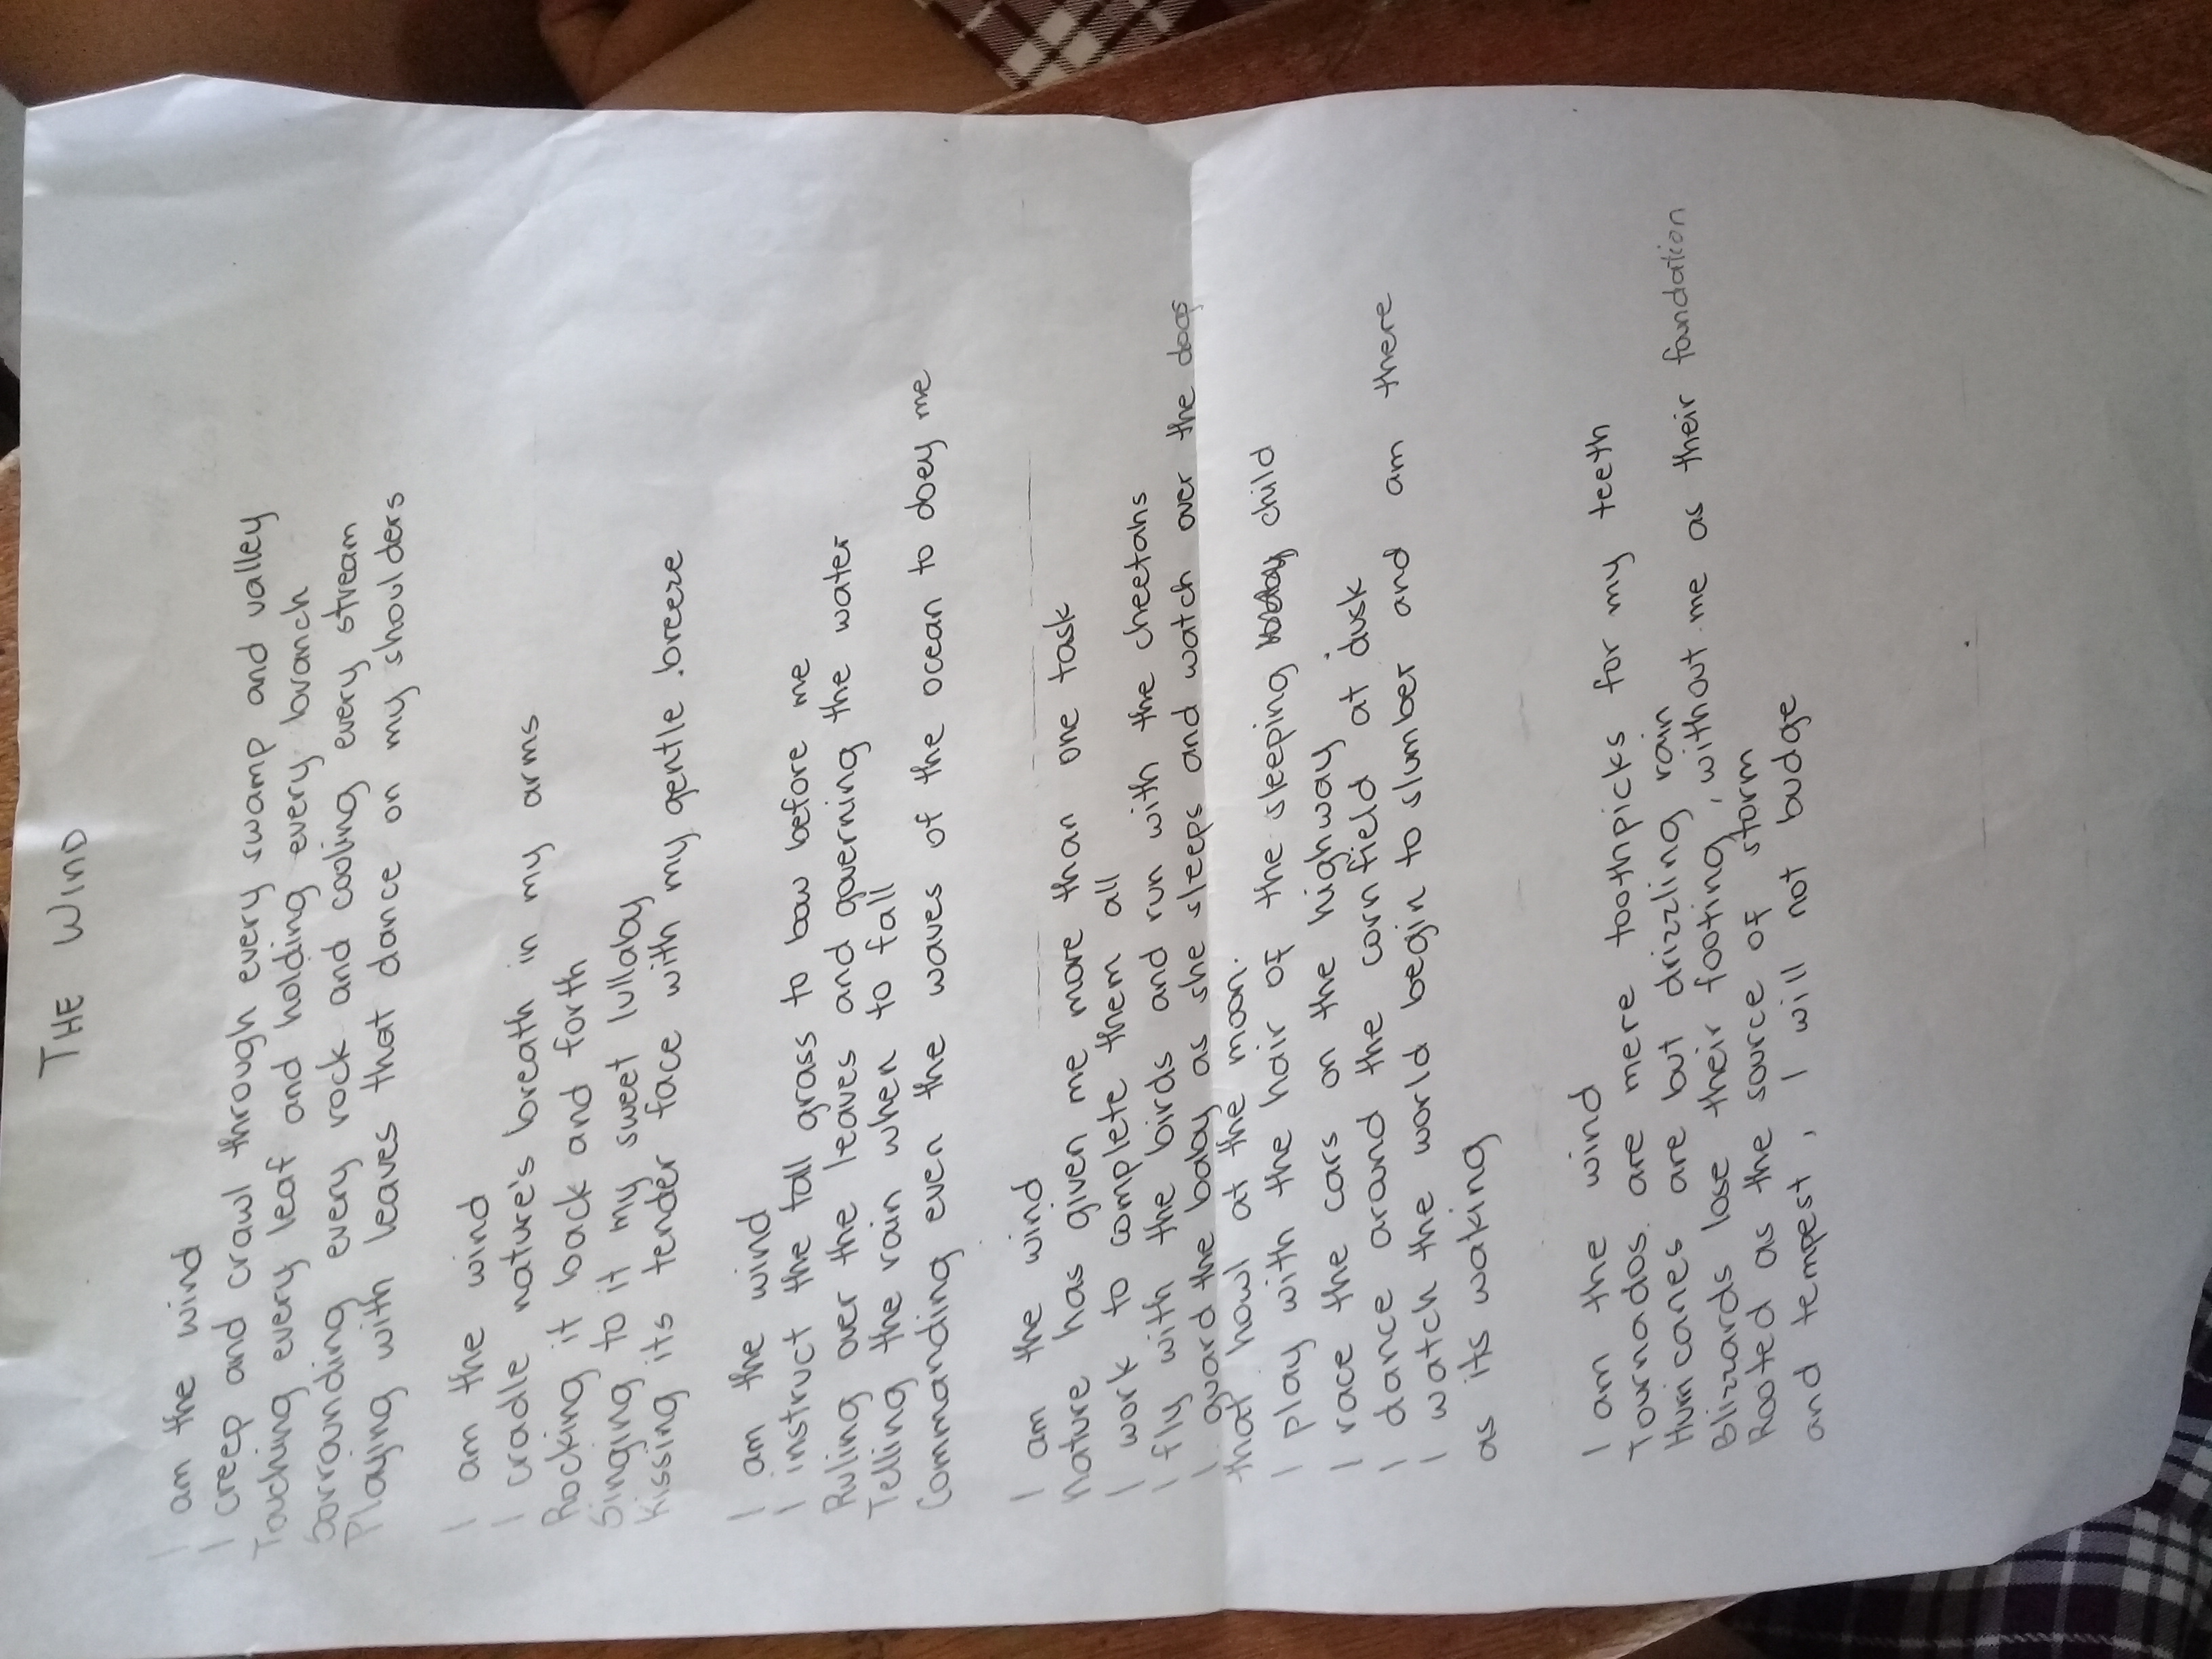 THE WIND
I am the wind
I creep and crawl through every swamp and valley
Touching every leaf and holding every branch
Sorrounding every rock and cooling every stream
Playing with leaves that dance on my shoulders
I am the wind
I cradle nature's breath in my arms
Rocking it back and forth
Singing to it my sweet lullaby
Kissing its tender face with my gentle breeze
I am the wind
I instruct the tall grass to bow before me
Ruling over the leaves and governing the water
Telling the rain when to fall
Commanding even the waves of the ocean to doey me
I am the wind
Nature has given me more than one task
I work to complete them all
I fly with the birds and run with the cheetahs
I guard the baby as she sleeps and watch over the dogs
that howl at the moon.
I play with the hair of the sleeping child
I race the cars on the highway
I dance around the corn field at dusk
I watch the world begin to slumber and am there
as its waking
I am the wind
Tournados are mere toothpicks for my teeth
Hurricanes are but drizzling rain
Blizzards lose their footing, without me as their foundation
Rooted as the source of storm
and tempest, I will not budge